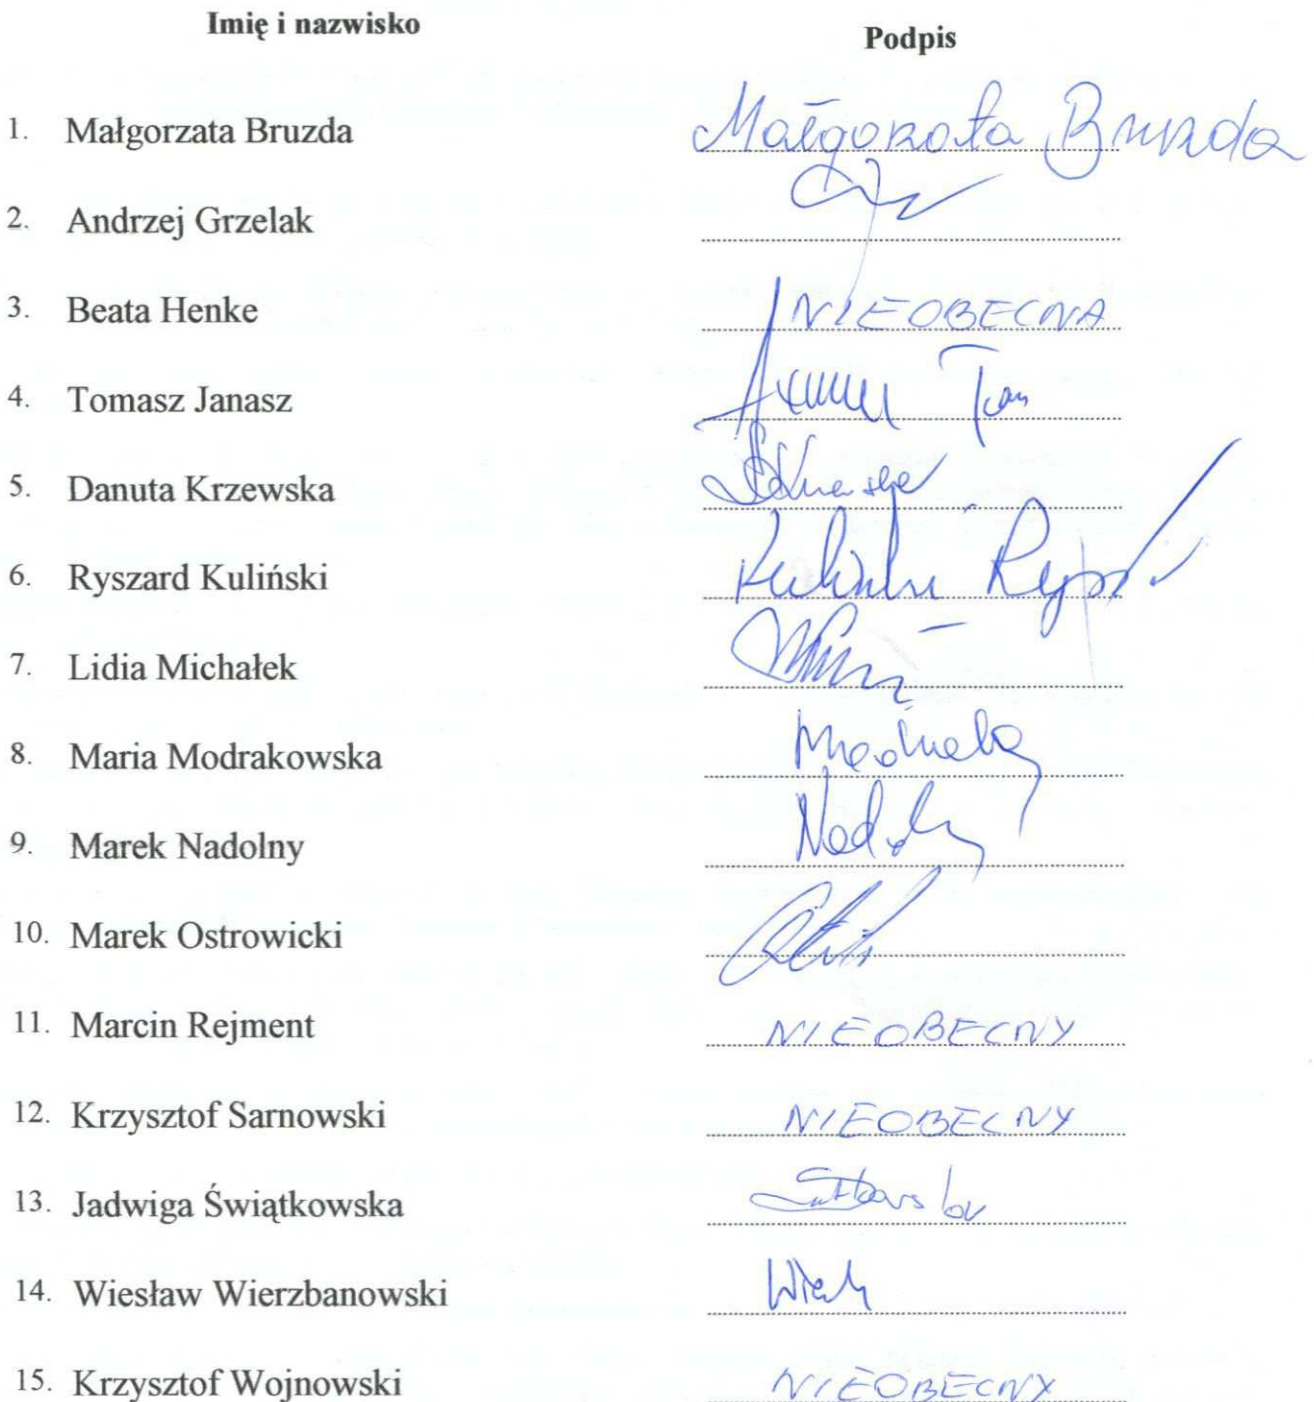 Imię i nazwisko Podpis
1. Małgorzata Bruzda Małgorzata Bruzda
2. Andrzej Grzelak
3. Beata Henke NIEOBECNA
4. Tomasz Janasz
5. Danuta Krzewska
6. Ryszard Kuliński
7. Lidia Michałek
8. Maria Modrakowska
9. Marek Nadolny
10. Marek Ostrowicki
11. Marcin Rejment NIEOBECNY
12. Krzysztof Sarnowski NIEOBECNY
13. Jadwiga Świątkowska
14. Wiesław Wierzbanowski
15. Krzysztof Wojnowski NIEOBECNY